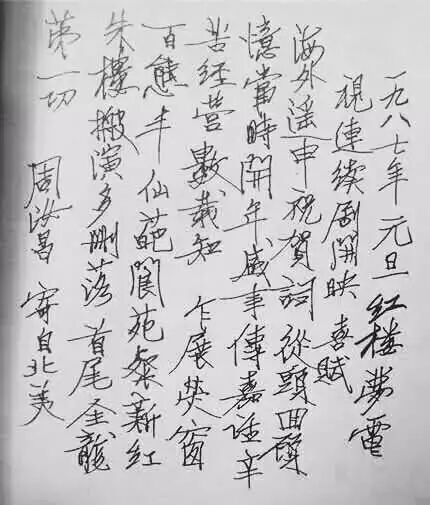 一九八七年元旦红楼梦電
視連续剧開映喜賦
海外遥申祝賀詞從頭回顧
憶當時開年盛事傳嘉话辛
苦经营數載知 乍展荧窗
百態丰仙葩閬苑粲新红
朱樓搬演多删落首尾全龍
第一功 周汝昌寄自北美